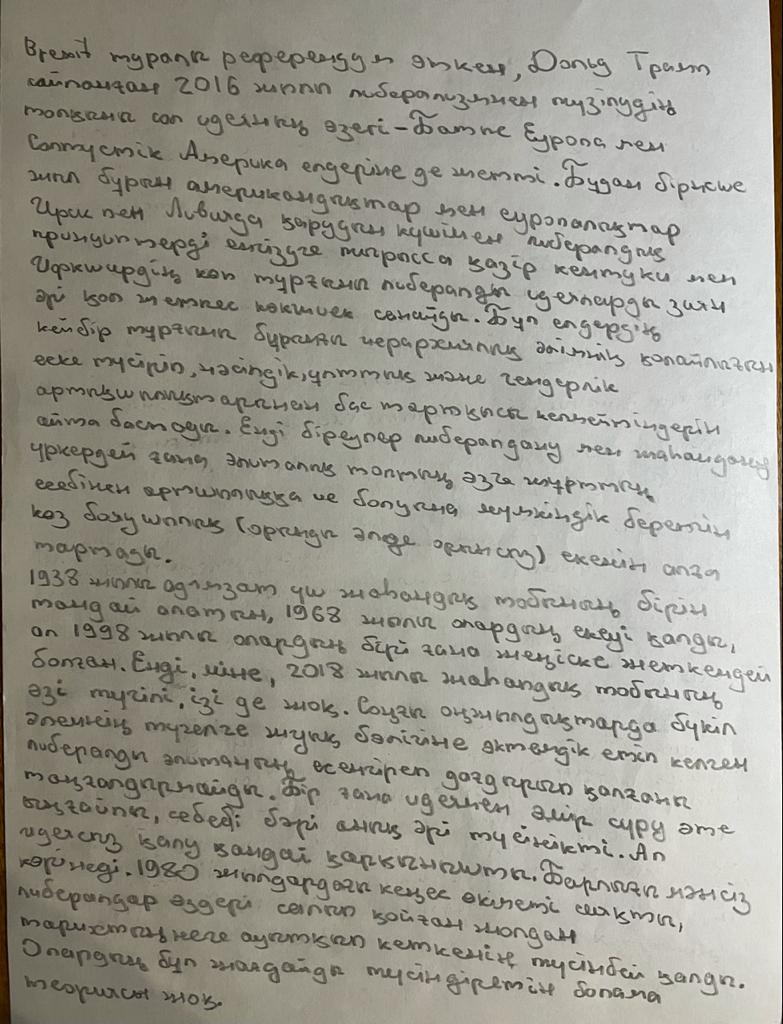 Brexit туралы референдум өткен, Дональд Трамп
сайланған 2016 жылы либерализмнен түңілудің
толқыны сол идеяның өзегі – Батыс Еуропа мен
Солтүстік Америка елдеріне де жетті. Бұдан бірнеше
жыл бұрын американдықтар мен еуропалықтар
Ирак пен Ливияда қарудың күшімен либералдық
принциптерді енгізуге тырысса қазір кентуки мен
Йоркширдің көп тұрғыны либералды идеяларды зиян
әрі қол жетпес көксеу санайды. Бұл елдердің
кейбір тұрғыны бұрынғы иерархиялық әлімнің қолайлығын
еске түсіріп, нәсілдік, ұлттық және гендерлік
артықшылықтарынан бас тартқысы келмейтіндерін
айта бастады. Енді біреулер либералдану мен жаһандану
үркердей ғана элиталық топтың өзге жұрттың
есебінен артықшылыққа ие болуына мүмкіндік беретін
көз бояушылық (орынды әлде орынсыз) екенін алға
тартады.
1938 жылы адамзат үш жаһандық тобының бірін
таңдай алатын, 1968 жылы олардың екеуі қалды,
ал 1998 жылы олардың бірі ғана жеңіске жеткендей
болған. Енді, міне, 2018 жылы жаһандық тобының
өзі түгілі, ізі де жоқ. Соңғы онжылдықтарда бүкіл
әлемнің түгелге жуық бөлігіне өктемдік етіп келген
либералды элитаның есеңгіреп дағдарып қалғаны
таңғалдырмайды. Бір ғана идеямен өмір сүру өте
ыңғайлы, себебі бәрі анық әрі түсінікті. Ал
идеясыз қалу қандай қорқынышты. Барлығы мәнсіз
көрінеді. 1980 жылдардағы кеңес өкіметі сияқты,
либералдар өздері салып қойған жолдан
тарихтың неге ауытқып кеткенін түсінбей қалды.
Олардың бұл жағдайды түсіндіретін балама
теориясы жоқ.